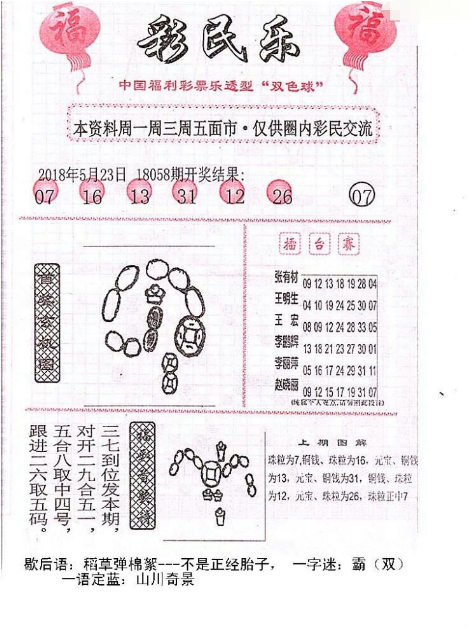 福
彩民乐
福
中国福利彩票乐透型“双色球”
本资料周一周三周五面市·仅供圈内彩民交流
2018年5月23日 18058期开奖结果:
07 16 13 31 12 26 07
擂台赛
张有材 09 12 13 18 19 28 04
王明生 04 10 19 24 25 30 07
王宏 08 09 12 24 28 33 05
13 18 21 23 27 30 01
李丽萍 05 16 17 24 29 31 11
赵晓丽 09 12 15 17 19 31 07
三七到位发本期，
对开二九合五一，
五合八取中四号，
跟进二六取五码。
上期图解
珠粒为7,铜钱、珠粒为16，元宝、铜钱
为13，元宝、铜钱为31，铜钱、珠粒
为12，元宝、珠粒为26，珠粒正中7
歇后语：稻草弹棉絮---不是正经胎子， 一字迷：霸（双）
一语定蓝：山川奇景